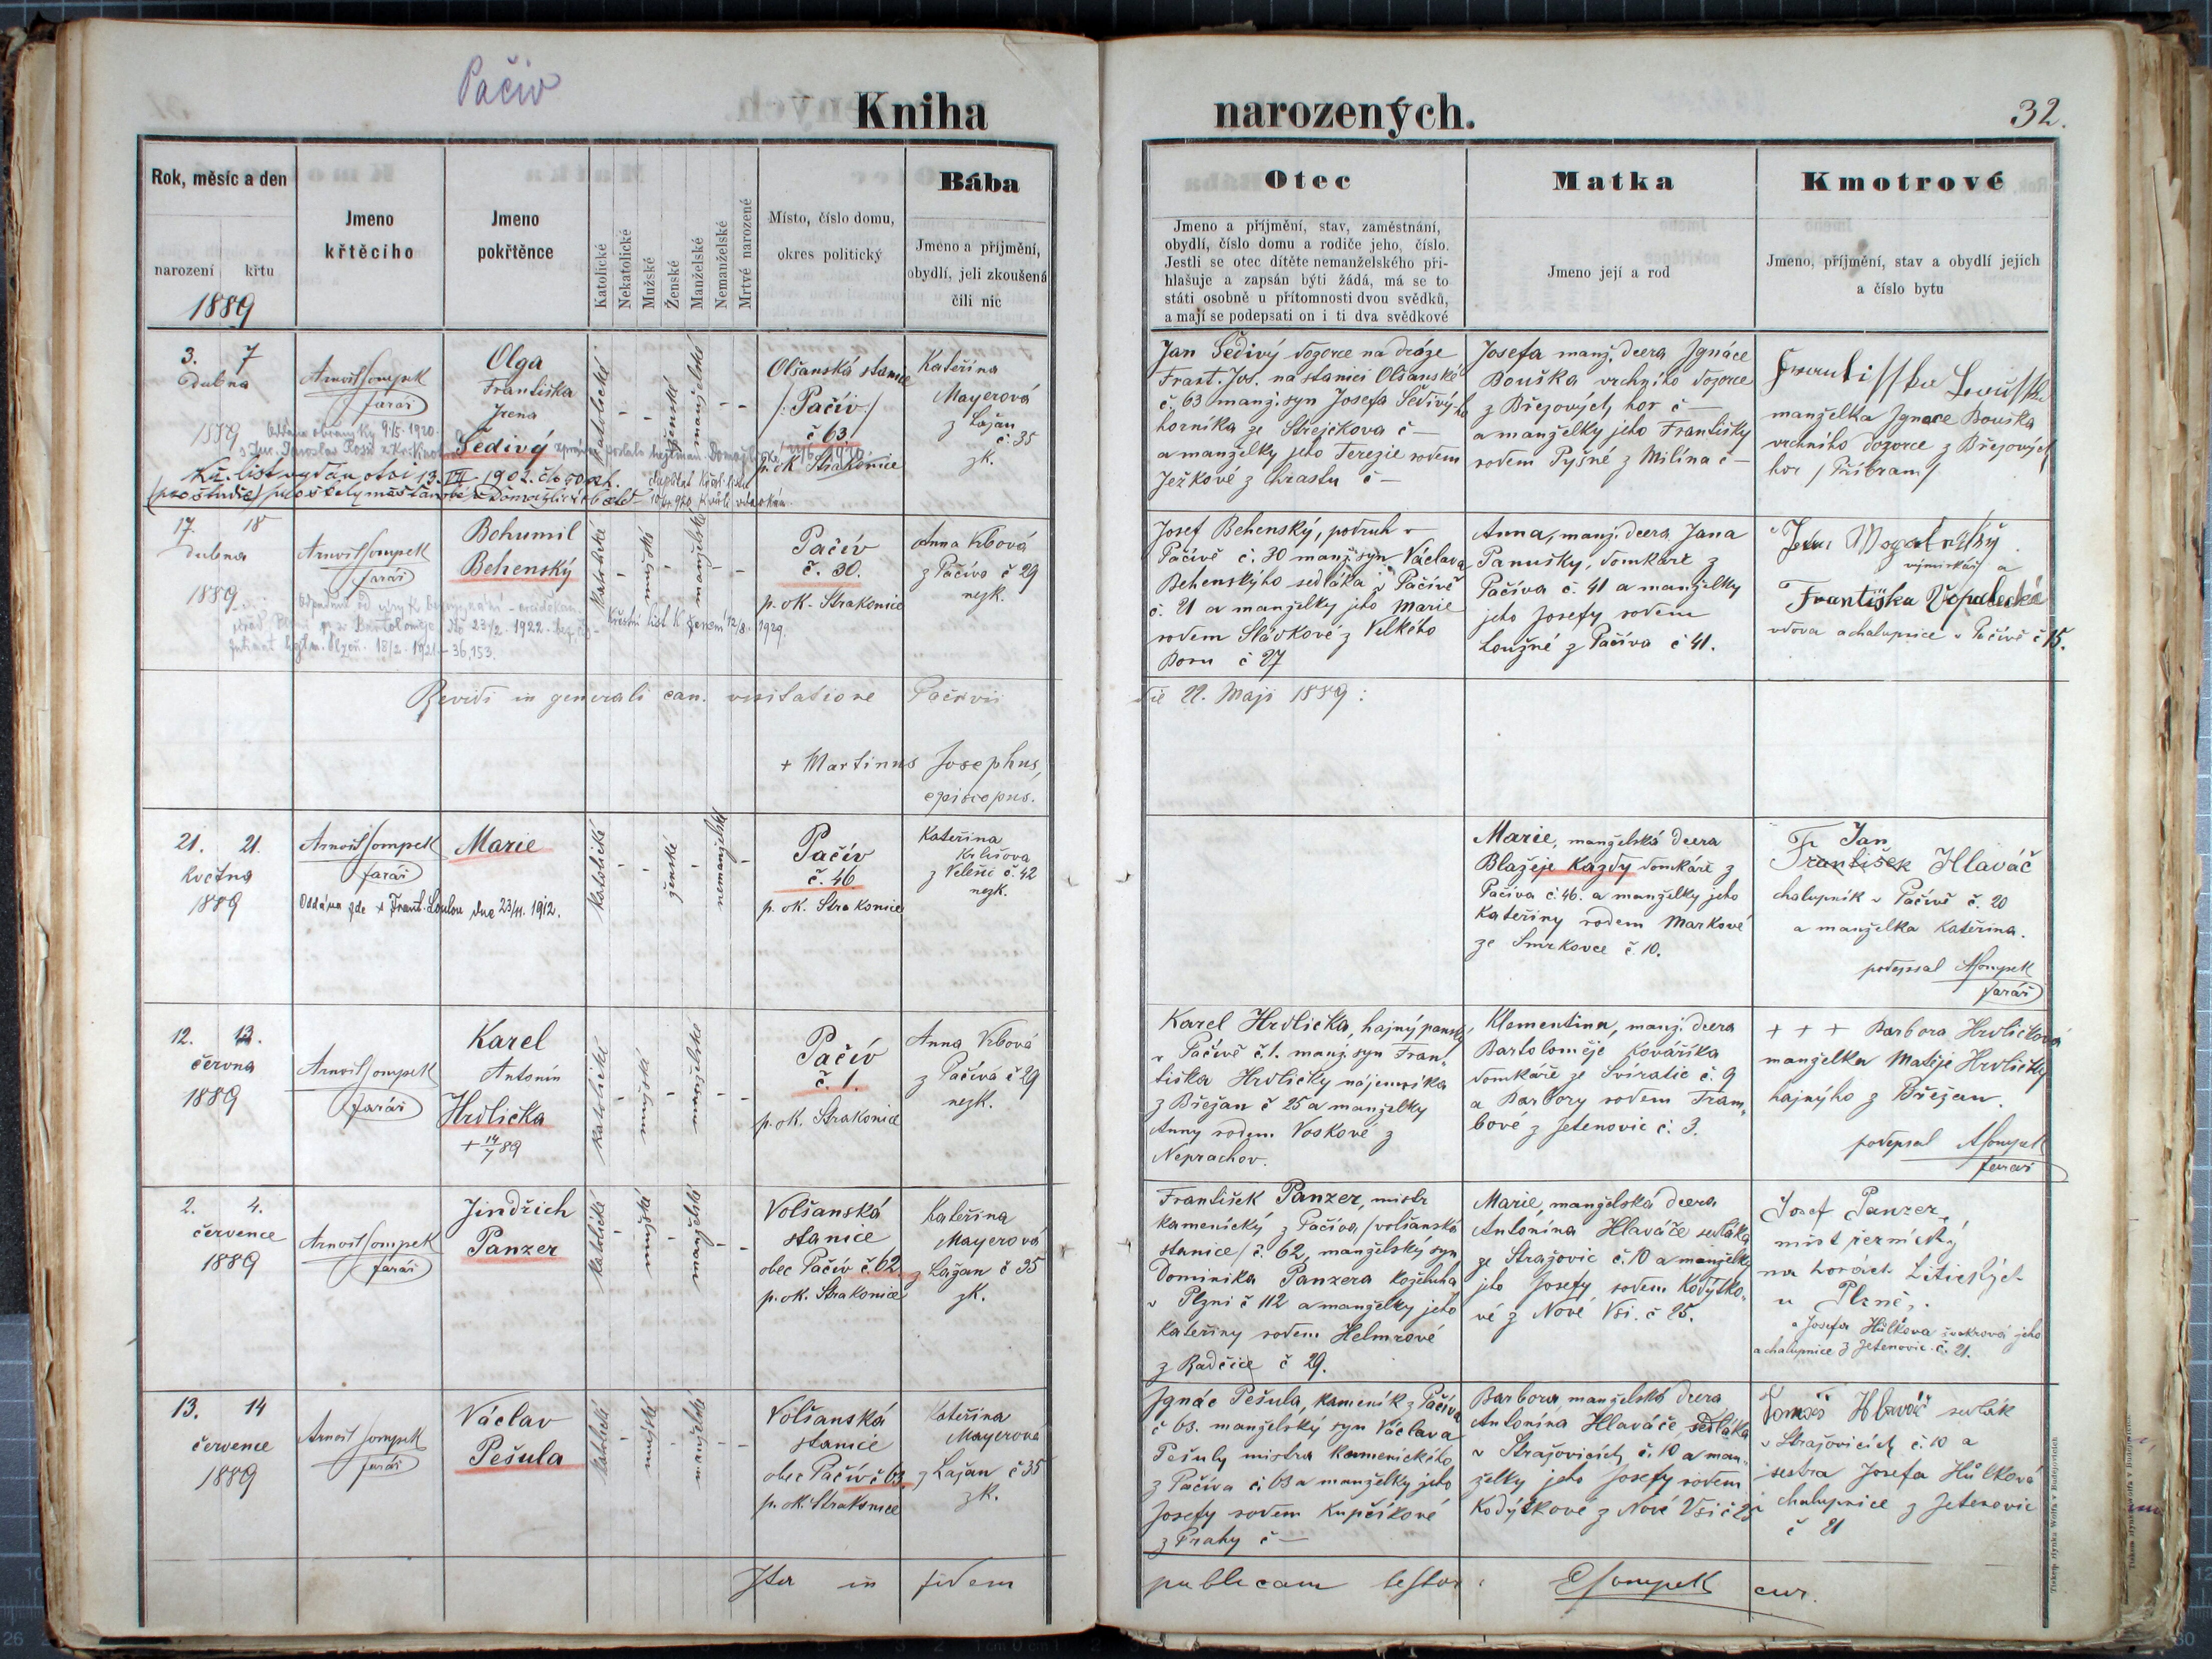 Pačiv
Kniha
narozených.
32.
Rok, měsíc a den
narození
křtu
1889
Jmeno
křtěcího
Jmeno
pokřtěnce
Katolické
Nekatolické
Mužské
Ženské
Manželské
Nemanželské
Mrtvé narozené
Místo, číslo domu,
okres politický
Bába
Jmeno a příjmění,
obydlí, jeli zkoušená
čili nic
Otec
Jmeno a příjmění, stav, zaměstnání,
obydlí, číslo domu a rodiče jeho, číslo.
Jestli se otec dítěte nemanželského při-
hlašuje a zapsán býti žádá, má se to
státi osobně u přítomnosti dvou svědků,
a mají se podepsati on i ti dva svědkové
Matka
Jmeno její a rod
Kmotrové
Jmeno, příjmění, stav a obydlí jejich
a číslo bytu
3. 7
Dubna
1889
Arnošt Sompek
farář
Olga
Františka
Irena
Šedivý
katolické
ženské
manželské
Olšanská stanice
/:Pačív:/
č 63
p. ok. Strakonice
Kateřina
Mayerová
z Lažan
č. 35
zk.
Jan Šedivý dozorce na dráze
Frant. Jos. na stanici Olšanské
č. 63 manž. syn Josefa Šedivýho
horníka ze Strejčkova č —
a manželky jeho Terezie rodem
Ježkové z Chrastu č —
Josefa manž. dcera Ignáce
Bouška vrchního dozorce
z Březových hor č —
a manželky jeho Františky
rodem Pyšné z Milína č —
manželka Ignace Bouška
vrchního dozorce z Březových
hor /Příbram/
17. 18
Dubna
1889
Arnošt Sompek
farář
Bohumil
Behenský
katolické
mužské
manželské
Pačív
č. 30.
p. ok. Strakonice
Křestní list k ženění 12/8. 1929.
Anna Vrbová
z Pačíva č 29
nezk.
Josef Behenský, podruh v
Pačívě č. 30 manž. syn Václava
Behenskyho sedláka v Pačívě
č. 21 a manželky jeho Marie
rodem Slávkové z Velkého
Boru č 27
Anna, manž. dcera Jana
Panušky, domkáře z
Pačíva č. 41 a manželky
jeho Josefy rodem
Loužné z Pačíva č 41.
výminkář a
Františka
vdova a chalupnice v Pačívě č 15.
Revidi in generali can. visitatione Pačivii
die 22. Maji 1889:
+ Martinus Josephus,
episcopus.
21. 21.
Května
1889
Arnošt Sompek
farář
Oddána zde s Frant. Loulou dne 23/11. 1912.
Marie
katolické
ženské
nemanželské
Pačív
č. 46
p. ok. Strakonice
Kateřina
z č. 42
nezk.
Marie, manželská dcera
Blažeje Kazdy domkáře z
Pačíva č. 46. a manželky jeho
Kateřiny rodem Markové
ze Smrkovce č. 10.
Jan
František Hlaváč
chalupník v Pačívě č. 20
a manželka Kateřina.
podepsal ASompek
farář
12. 13.
června
1889
Arnošt Sompek
farář
Karel
Antonín
Hrdlička
+ 14/7 89
katolické
mužské
manželské
Pačív
č. 1.
p. ok. Strakonice
Anna Vrbová
z Pačíva č 29
nezk.
Karel Hrdlička, hajný panský
v Pačívě č. 1. manž. syn Fran-
tiška Hrdličky nájemníka
z Břežan č 25 a manželky
Anny rodem Voskové z
Neprachov.
Klementina, manž. dcera
Bartoloměje Kováříka
domkáře ze Svíratic č. 9
a Barbory rodem Tram-
bové z Jetenovic č. 3.
+ + + Barbora Hrdličková
manželka Matěje Hrdličky
hajnýho z Břežan.
podepsal ASompek
farář
2. 4.
července
1889
Arnošt Sompek
farář
Jindřich
Panzer
katolické
mužské
manželské
Volšanská
stanice
obec Pačív č. 62.
p. ok. Strakonice
Kateřina
Mayerová
z Lažan č 35
zk.
František Panzer, mistr
kamenický z Pačíva, /volšanská
stanice/ č. 62, manželský syn
Dominika Panzera koželuha
v Plzni č 112 a manželky jeho
Kateřiny rodem Helmrové
z Radčice č 29.
Marie, manželská dcera
Antonína Hlaváče sedláka
ze Stražovic č. 10 a manželky
jeho Josefy, rodem Kodýtko-
vé z Nové Vsi č 25.
Josef Panzer,
mist řeznický
na horách
u Plzně,
a Josefa Hůlkova švakrová jeho
a chalupnice z Jetenovic č. 21.
13. 14
července
1889
Arnošt Sompek
farář
Václav
Pešula
katolické
mužské
manželské
Volšanská
stanice
obec Pačív č 63
p. ok. Strakonice
Kateřina
Mayerova
z Lažan č 35
zk.
Ignác Pešula, kameník z Pačíva
č 63. manželský syn Václava
Pešuly mistra kamenického
z Pačíva č. 63 a manželky jeho
Josefy rodem Kupčíkové
z Prahy č —
Barbora, manželská dcera
Antonína Hlaváče sedláka
v Stražovicích č. 10 a man-
želky jeho Josefy rodem
Kodýtkové z Nové Vsi č 25
Tomáš Hlaváč sedlák
v Stražovicích č. 10 a
sestra Josefa Hůlková
chalupnice z Jetenovic
č 21
Ita in fidem
publicam testor: ASompek cur.
Tiskem Hynka Wolfa v Budějovicích